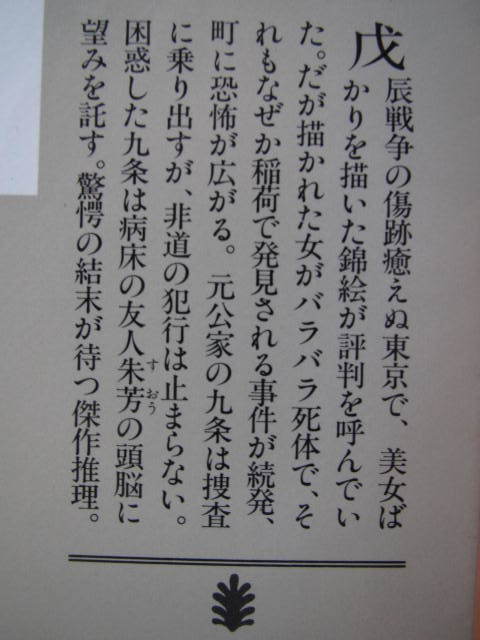 戊辰戦争の傷跡癒えぬ東京で、美女ば
かりを描いた錦絵が評判を呼んでい
た。だが描かれた女がバラバラ死体で、そ
れもなぜか稲荷で発見される事件が続発、
町に恐怖が広がる。元公家の九条は捜査
に乗り出すが、非道の犯行は止まらない。
困惑した九条は病床の友人朱芳の頭脳に
すおう
望みを託す。驚愕の結末が待つ傑作推理。